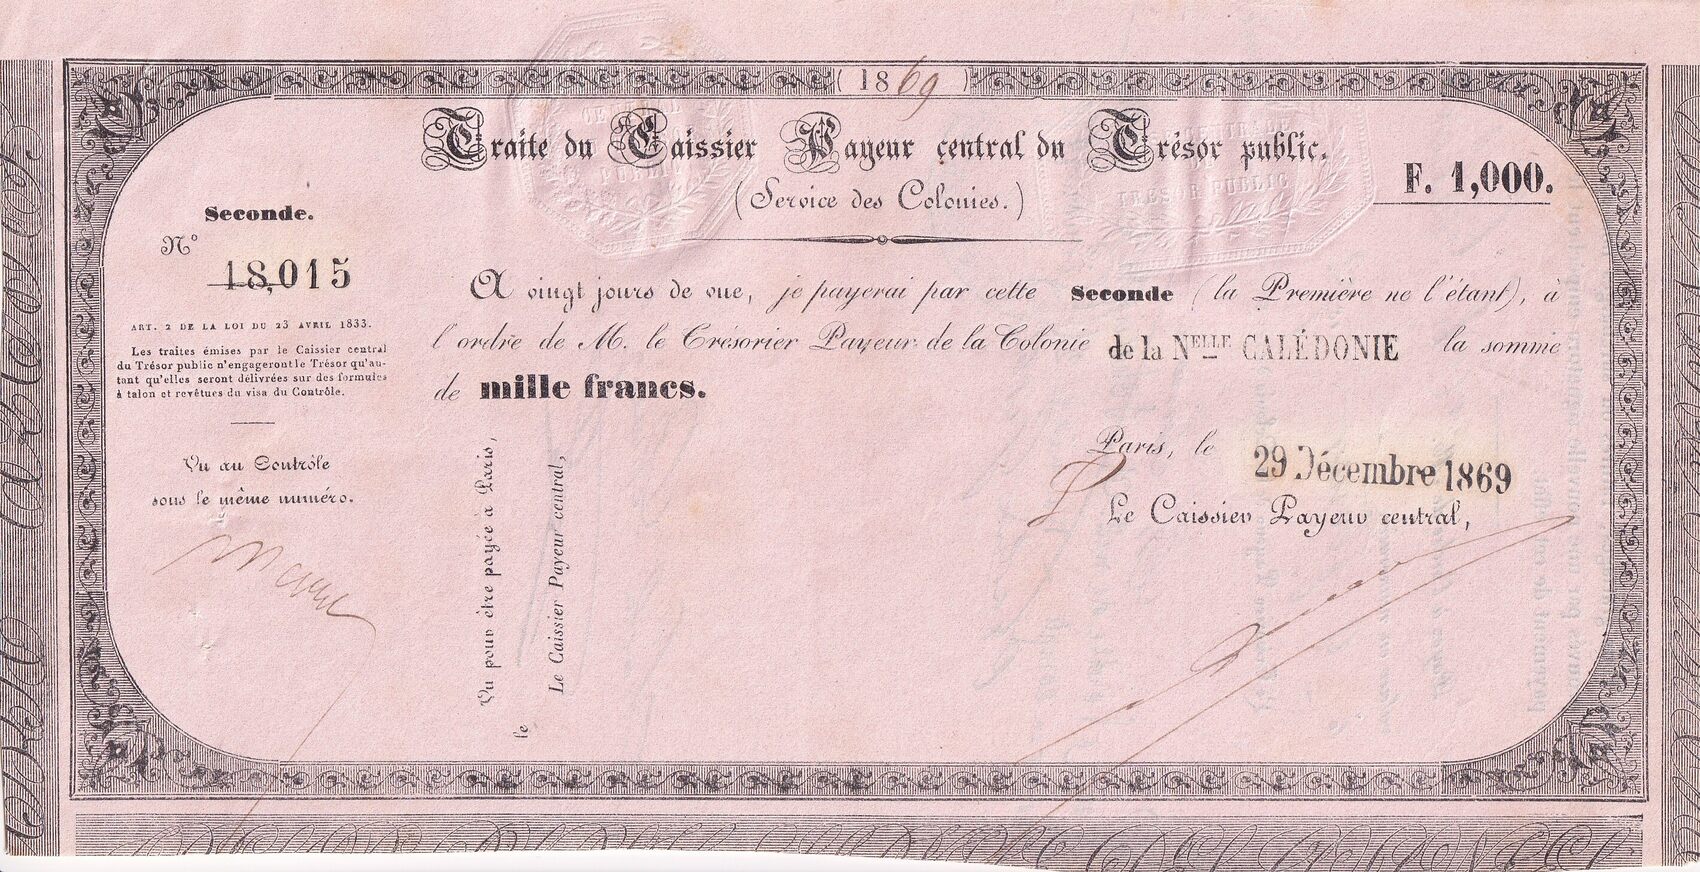 (1869)
Traite du Caissier Payeur central du Trésor public.
(Service des Colonies.)
F. 1,000.
Seconde.
N° 18,015
ART. 2 DE LA LOI DU 23 AVRIL 1833.
Les traites émises par le Caissier central
du Trésor public n'engageront le Trésor qu'au-
tant qu'elles seront délivrées sur des formules
à talon et revêtues du visa du Contrôle.
Vu au Contrôle
sous le même numéro.
A vingt jours de vue, je payerai par cette Seconde (la Première ne l'étant), à
l'ordre de M. le Trésorier Payeur de la Colonie de la Nelle CALÉDONIE la somme
de mille francs.
Paris, le 29 Décembre 1869
Le Caissier Payeur central,
Vu pour être payée à Paris,
le
Le Caissier Payeur central,
CENTRALE
TRESOR PUBLIC
PUBLIC